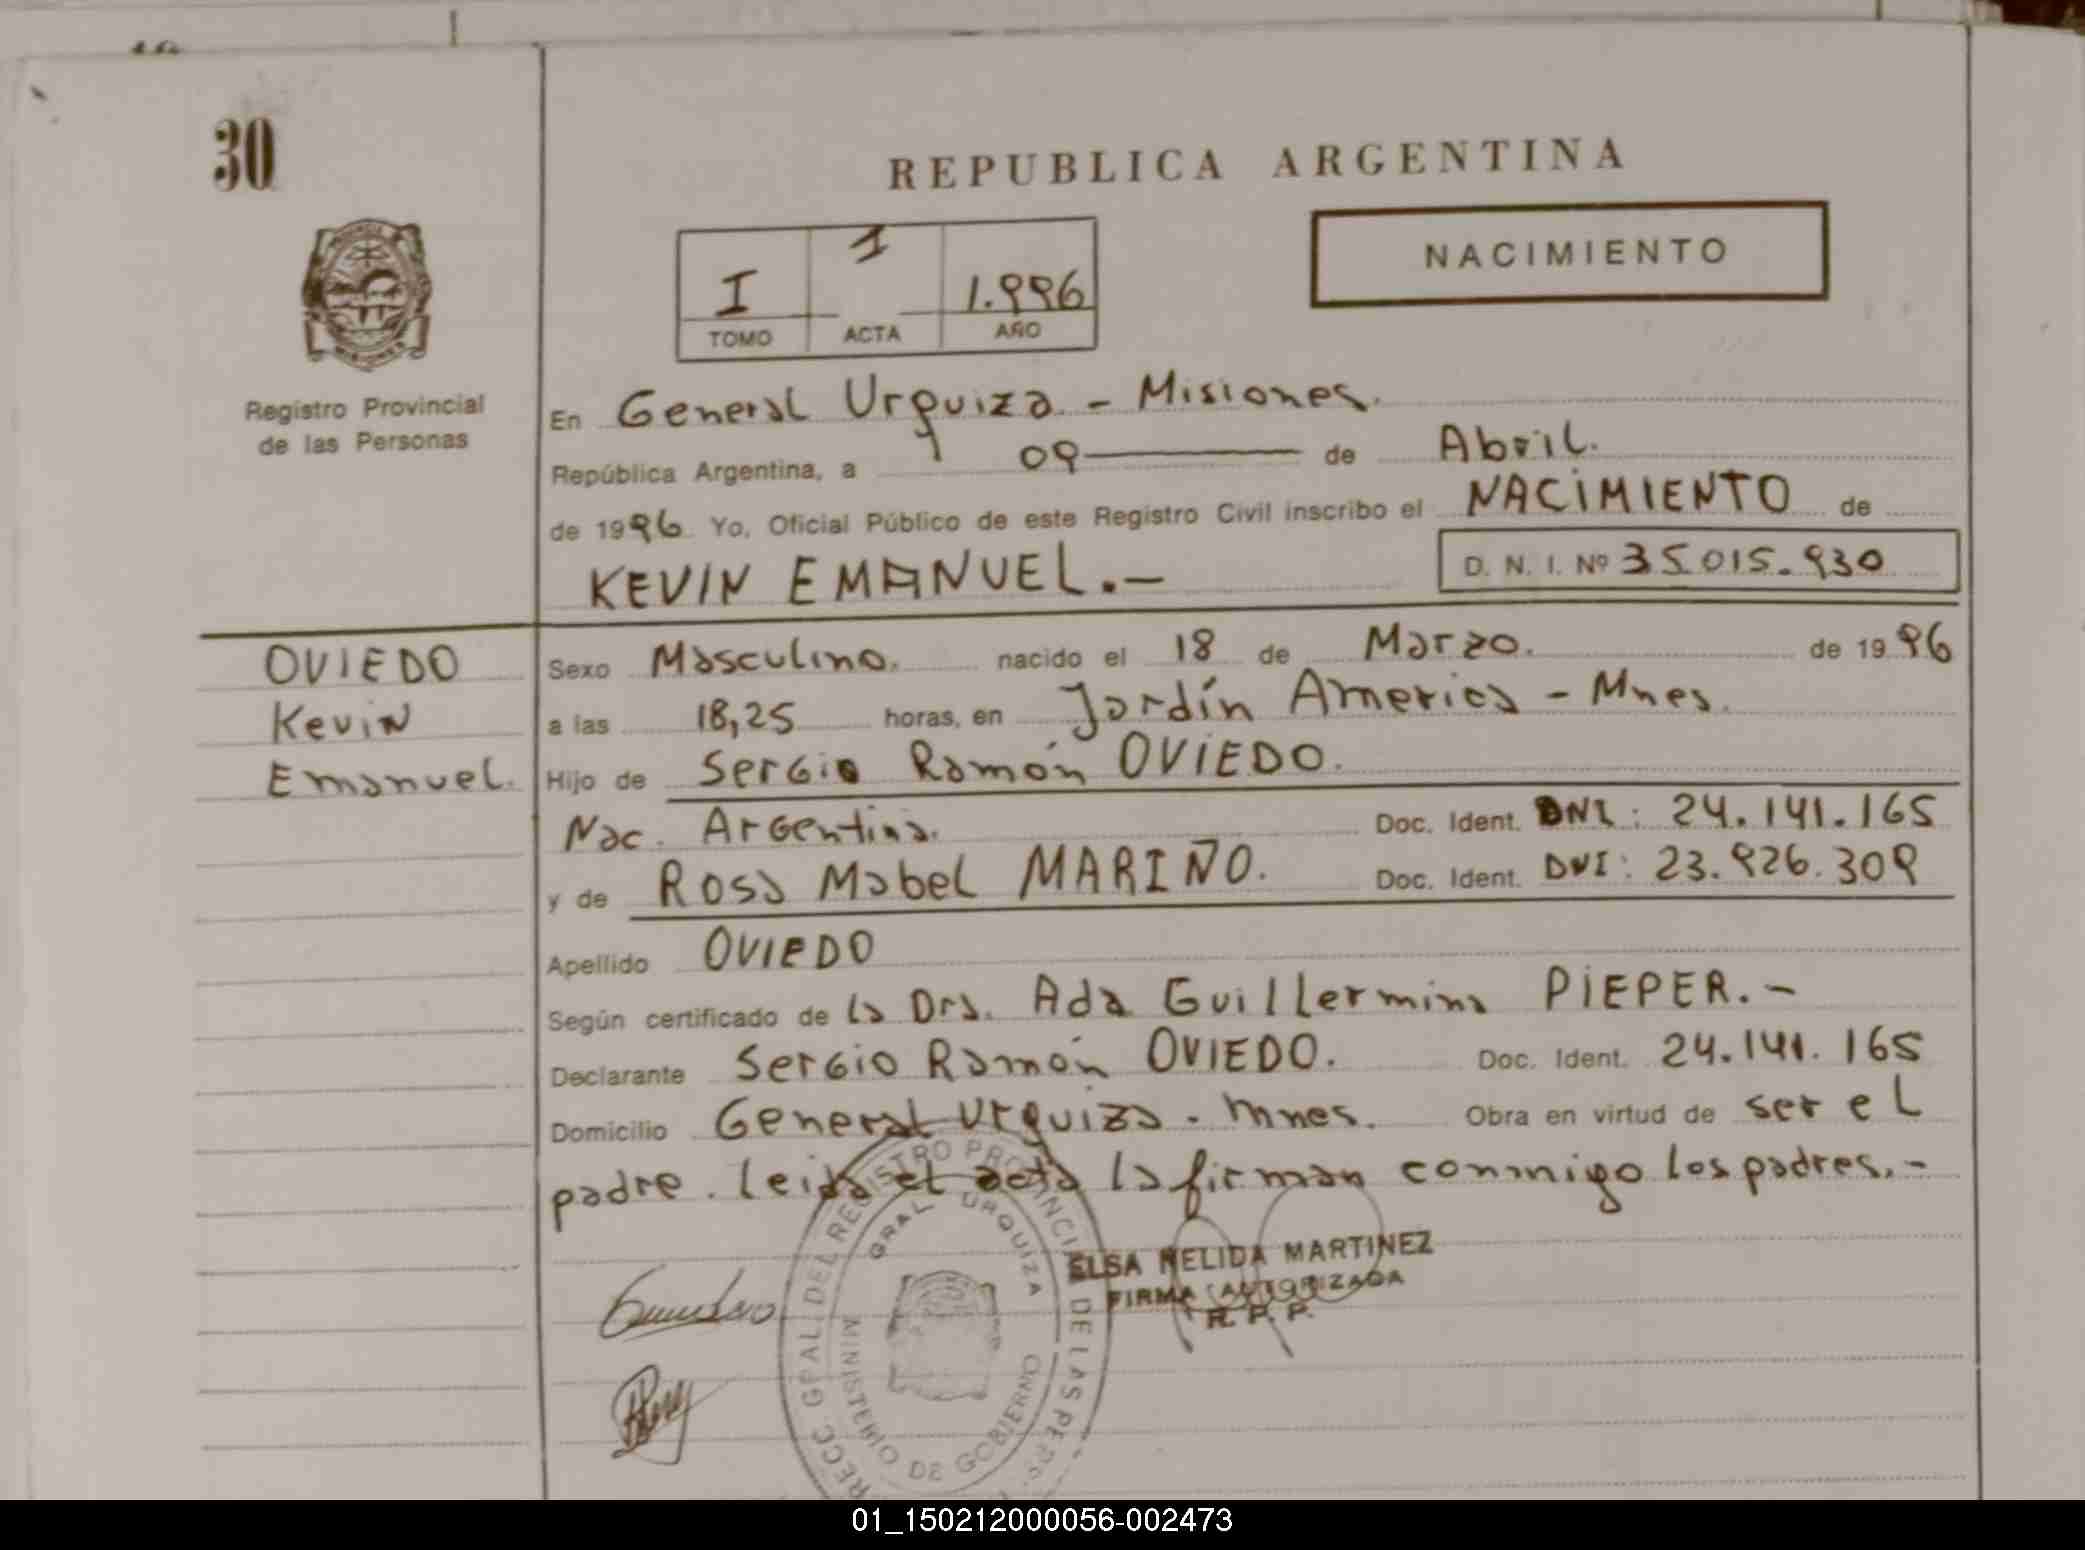 30
REPUBLICA ARGENTINA
NACIMIENTO
I 1 1.996
TOMO ACTA AÑO
Registro Provincial
de las Personas
En General Urquiza - Misiones.
República Argentina, a 09 de Abril.
de 1996 Yo, Oficial Público de este Registro Civil inscribo el NACIMIENTO de
KEVIN EMANUEL.-
D. N. I. Nº 35.015.930
OVIEDO
Kevin
Emanuel.
Sexo Masculino. nacido el 18 de Marzo. de 1996
a las 18,25 horas, en Jardín America - Mnes.
Hijo de Sergio Ramón OVIEDO.
Nac. Argentina. Doc. Ident. DNI: 24.141.165
y de Rosa Mabel MARIÑO. Doc. Ident. DNI: 23.926.309
Apellido OVIEDO
Según certificado de la Dra. Ada Guillermina PIEPER.-
Declarante Sergio Ramón OVIEDO. Doc. Ident. 24.141.165
Domicilio General Urquiza - Mnes. Obra en virtud de ser el
padre. leida el acta la firman conmigo los padres.-
ELSA NELIDA MARTINEZ
FIRMA AUTORIZADA
R. P. P.
GRAL URQUIZA
MINISTERIO DE GOBIERNO
01_150212000056-002473